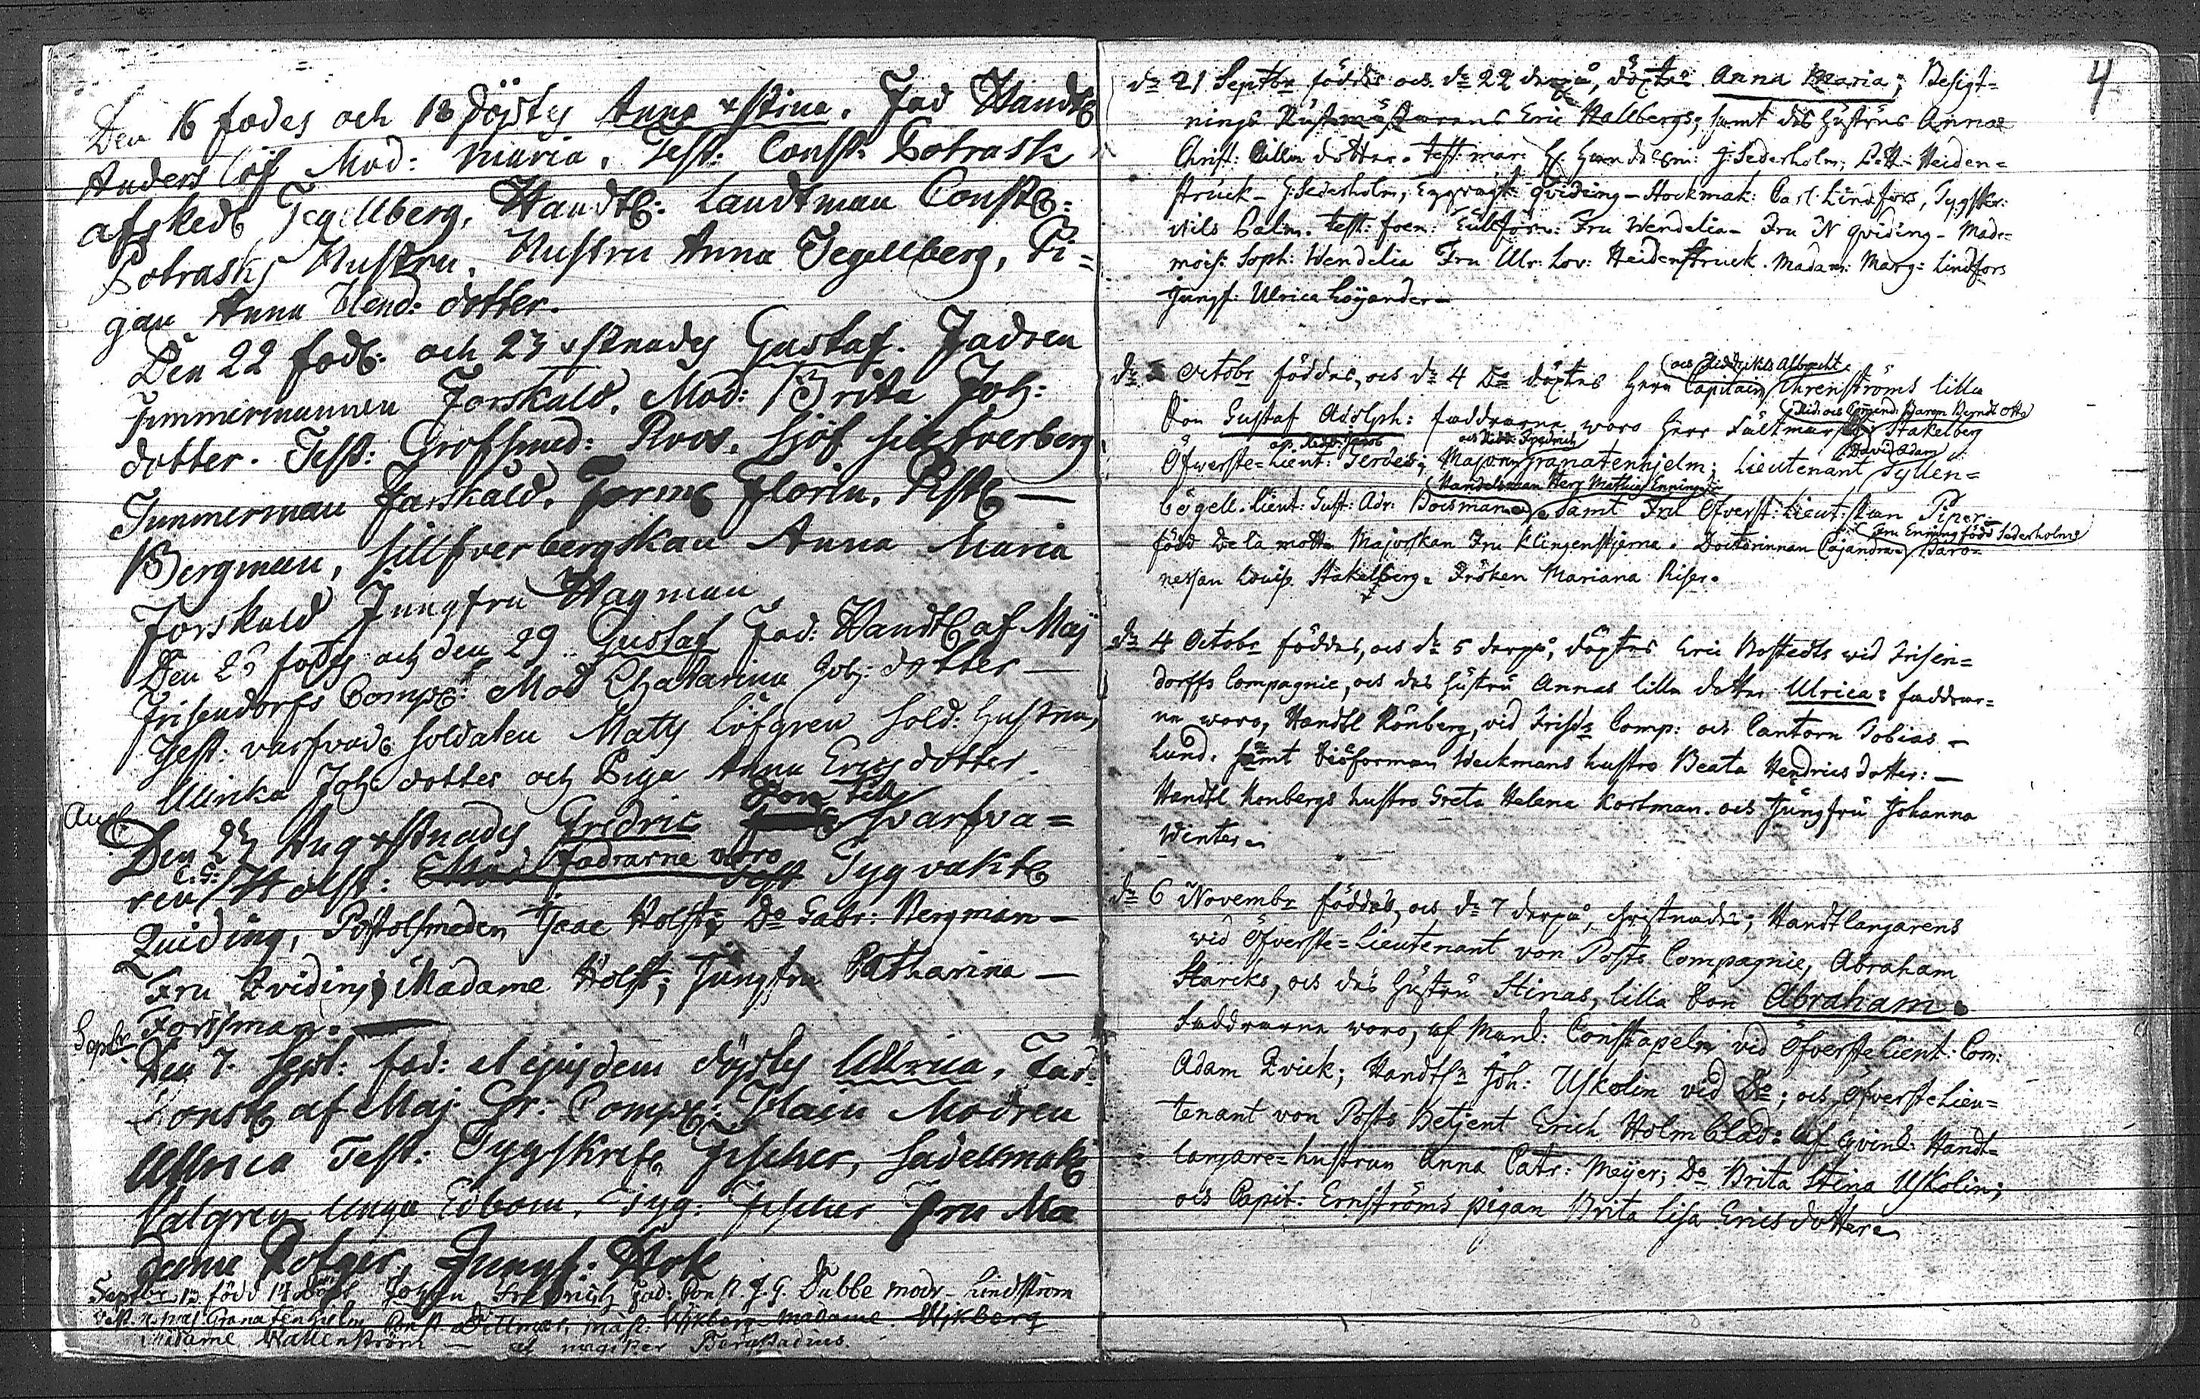 Den 16 fodes och 18 döptes Anna xstina. Fad Handtl
Anders Löf Mod: Maria. Test: Const: Potrask
afsked: Tegellberg, Handtl: Landtman Constl:
Potrasks Hustru, Hustru Anna Tegellberg, Pi=
gan Anna Hend: dotter.
Den 22 fod: och 23 xstnades Gustaf. Fadren
Timmermannen Forskald. Mod: Brita Joh:
dotter. Test: Grofsmed: Roos. Silfverberg
Timmerman Forskald. Florin.
Bergman, Sillfverbergskan Anna Maria
Forskuld Jungfru Hagman
och den 29 Gustaf Fad: Handtl af Maj
Frisendorfs Comp: Mod Chatarina Joh: dotter —
Test: varfvade Soldaten Mats Löfgren Sold: Hustru,
Ullrika Joh dotter och Piga Anna Erics dotter.
Aug:
Son till
Den 27 Aug xstnades Fredric varfva=
ren Holst: fadrarne woro Tygvakt
Quiding, Pistolsmeden Isaac Holst; Do Gabr: Bergman —
Fru Qviding; Madame Holst; Jungfru Catharina —
Forssman. —
Septbr
Den 7. Sept: fod: et ejusdem döptes Ullrica, Fad:
Const af Maj Gr: Comp: Modren
Ullrica Test: Tygskrif Fischer, Sadellmak
Valgren Unga Edbom. Tyg: Fischer Fru Ma
dame Jungf: Hok
Septbr 13 född 14 döpt Johan Fredrich Fad: Const J. G. Dubbe modr Lindström
Test: Granatenhielm Const Dittmer, Mäst: Wikberg Madame Wikberg
Madame Wallenström — af magister Bergstadius.
4
dn 21 Septbr föddes och dn 22 derpå, döptes Anna Maria; Besigt=
nings Rustmästarens Eric Hallbergs; samt des Hustrus Annæ
Christ: dotter. Test: mar: Hr: J: Sederholm; Heiden=
struck — J: Sederholm, Qviding — Stockmak: Carl Lindfors, Tygskr:
Nils Palm. Test: foem: Fru Wendelia — Fru N Qviding — Made=
mois: Soph: Wendelia Fru Ulr: Lov: Heidenstruck. Madam: Marg: Lindfors
Jungf: Ulrica Löyander —
och Ridd: Nils Albrecht
dn Octobr föddes, och dn 4 Do döptes Herr Capitain Ehrenströms lilla
Rid: och Comend: Baron Berndt Otto
Son Gustaf Adolph: faddrarne woro Herr Fältmarsk: Stakelberg
och Ridd: Jacob och Ridd: Fredrich David Adam
Öfwerste=Lieut: Gerdes; Majorn Granatenhjelm; Lieutenant Gyllen=
Handelsman Herr Mathias Enning
bögell. Lieut: Gust: Adr: Boisman samt Fru Öfverst: Lieut:skan Piper:
Fru Enning född Sederholm
född De la motte Majorskan Fru Klingenstjerna. Doctorinnan Cajandra Baro=
nessan Louis Stakelberg. Fröken Mariana Riser.
dn 4 Octobr föddes, och dn 5 derpå, döptes Eric Bostedts wid Frisen=
dorffs Compagnie, och des Hustru Annas lilla dotter Ulrica: faddrar=
ne woro, Handtl Rönberg, vid Comp: och Cantorn Tobias —
Lund. Samt Weckmans hustro Beata Hendrics dotter: —
Handtl Konbergs hustro Greta Helena Kortman. och Jungfru Johanna
Winter.
dn 6 Novembr föddes, och dn 7 derpå, christnades; Handtlangarens
wid Öfverste=Lieutenant von Posts Compagnie, Abraham
Starcks, och des Hustru Stinas, lilla Son Abraham.
Faddrarne woro, af Mank: Constapeln vid Öfverste Lieut: Com:
Adam Qvick; Handtln Joh: Uskolin vid Do; och Öfverste Lieu=
tenant von Posts Betjent Erich Holmblad: af qvink: Handt=
langare=hustrun Anna Catr: Meyer; Do Brita Stina Uskolin;
och Capit: Ernströms pigan Brita Lisa Ericsdotter.